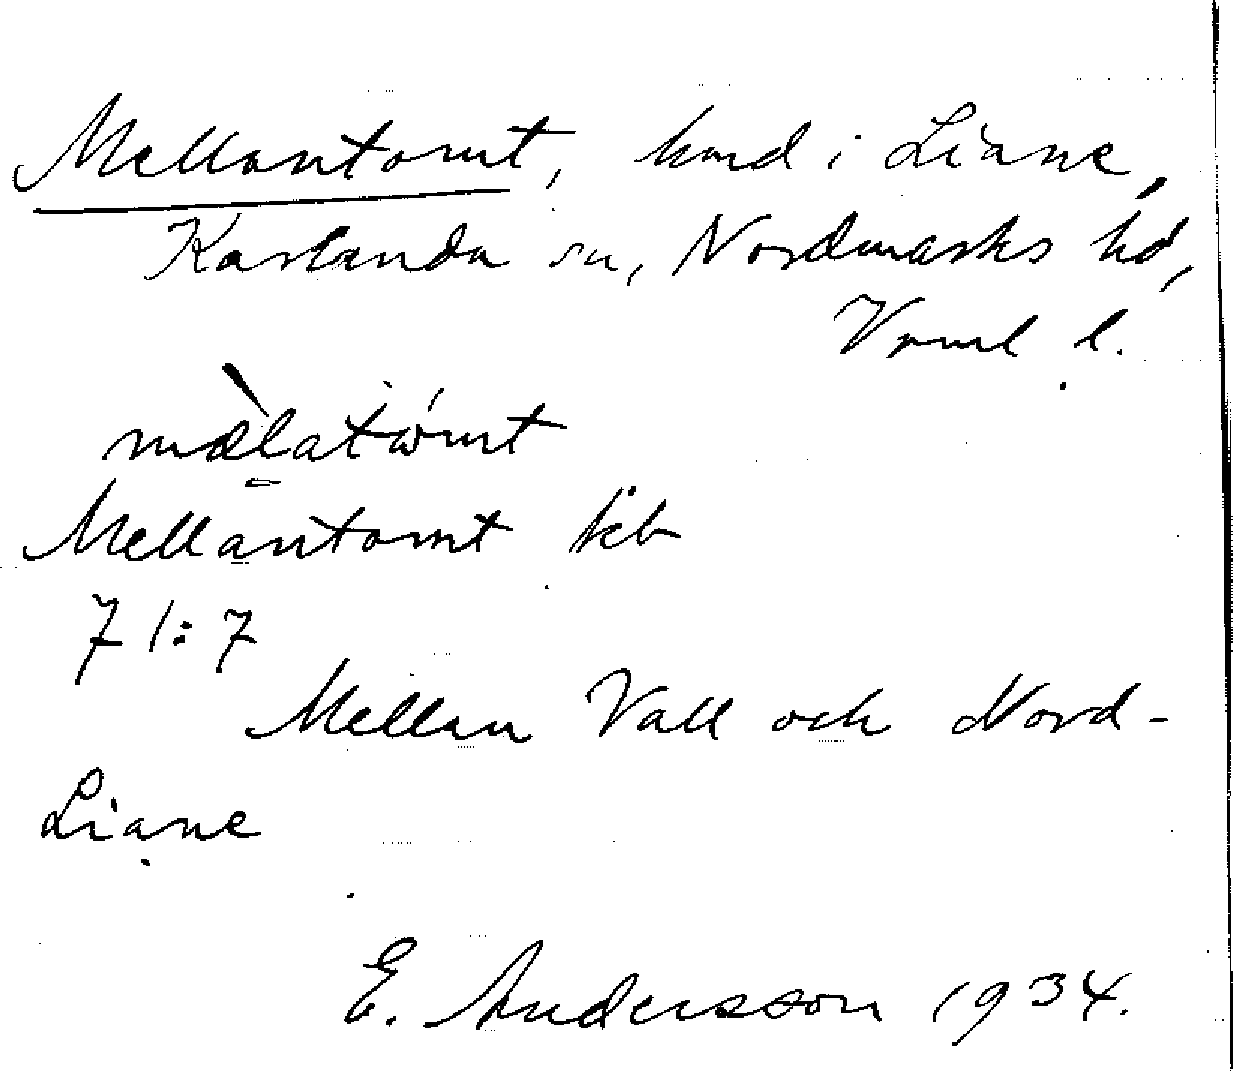 Mellantomt, hmd i Liane,
Karlanda sn, Nordmarks hd,
Vrml l.
mælatωmt
Mellantomt
7 1:7
Mellan Vall och Nord-
Liane
E. Andersson 1934.